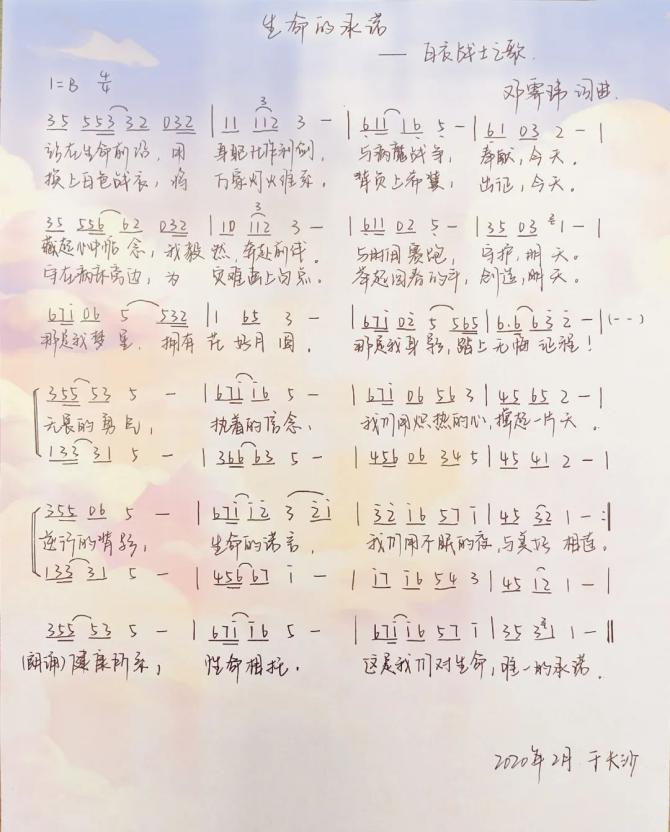 生命的承诺
—— 白衣战士之歌.
1=B 4/4
邓霁玮 词曲.
35 553 32 032 | 11 112 3 - | 611 16 5 - | 61 03 2 - |
站在生命前沿，用 身躯化作利剑， 与病魔战争， 奉献，今天。
换上白色战衣，将 万家灯火维系。 背负上希冀， 出征，今天。
35 556 62 032 | 10 112 3 - | 611 02 5 - | 35 03 1 - |
藏起心中惦念，我毅 然，奔赴前线。 与时间赛跑， 守护，明天。
守在病床旁边，为 灾难画上句点。 举起图卷的斗，创造，明天。
67i 06 5 532 | 1 65 3 - | 67i 02 5 565 | 6·6 63 2 - | (--)
那是我梦里 拥有 花好月圆， 那是我身影，踏上无悔征程！
355 53 5 - | 67i i6 5 - | 67i 06 56 3 | 45 65 2 - |
无畏的勇气， 执着的信念， 我们用炽热的心，撑起一片天。
133 31 5 - | 366 63 5 - | 456 06 34 5 | 45 41 2 - |
355 06 5 - | 67i i2 3 2i | 32 i6 57 i | 45 32 1 - :|
逆行的背影， 生命的诺言， 我们用不眠的夜，与美好 相连。
133 31 5 - | 456 67 i - | i7 i6 54 3 | 45 12 1 - |
355 53 5 - | 67i i6 5 - | 67i i6 57 i | 35 3 1 - ‖
(朗诵)健康所系， 性命相托。 这是我们对生命，唯一的承诺。
2020年2月 于长沙